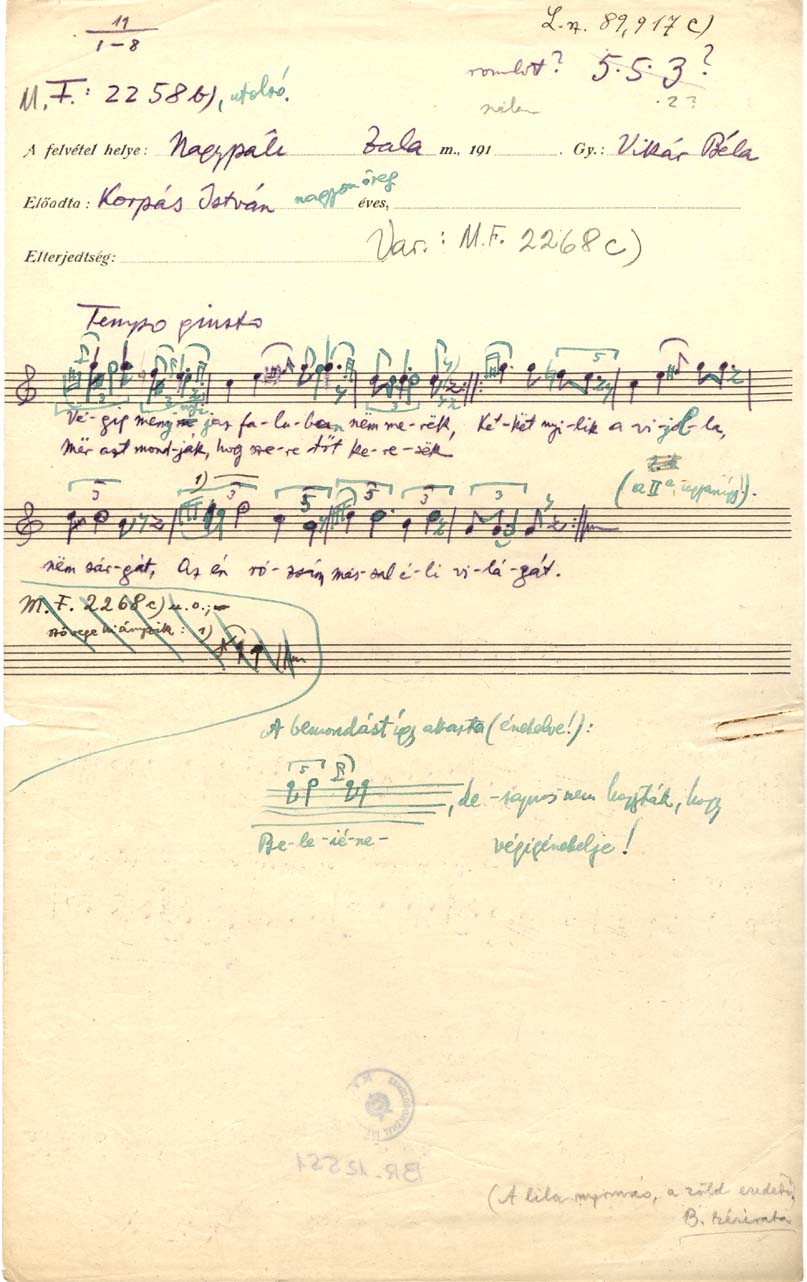 11
1-8
L.sz. 89,917 c)
romlott? 5.5.3?
2?
M.F.: 2258b), utolsó.
A felvétel helye: Nagypáli Zala m., 191 . Gy.: Vikár Béla
Előadta: Korpás István nagyon öreg éves,
Elterjedtség:
Var.: M.F. 2268c)
Tempo giusto
3
3
3
5
Vé-gig jas fa-lu-ban nem me-rëk, Két-két nyi-lik a vi-jol-la,
Mer azt mond-ják, hogy sze-re-tőt ke-re-sëk
(a II ugyanígy!).
3
1) 3
5
5
3
3
nëm sár-gát, Az én ró-zsám más-sal é-li vi-lá-gát.
M.F. 2268c) u.o.;
szövege hiányzik: 1)
A bemondást így akarta (énekelve!):
5
, de sajnos nem hagyták, hogy
Be-le-ié-ne- végigénekelje!
BR-12551
(A lila nyomás, a zöld eredeti
B. kézirata